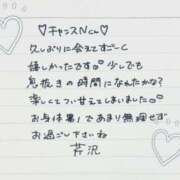 チャンスNくん
久しぶりに会えてすごーく
嬉しかったです 少しでも
息抜きの時間になれたかな?
楽しくてつい甘えてしまいました
お身体 であまり無理せず
お過ごし下さいね
芹沢